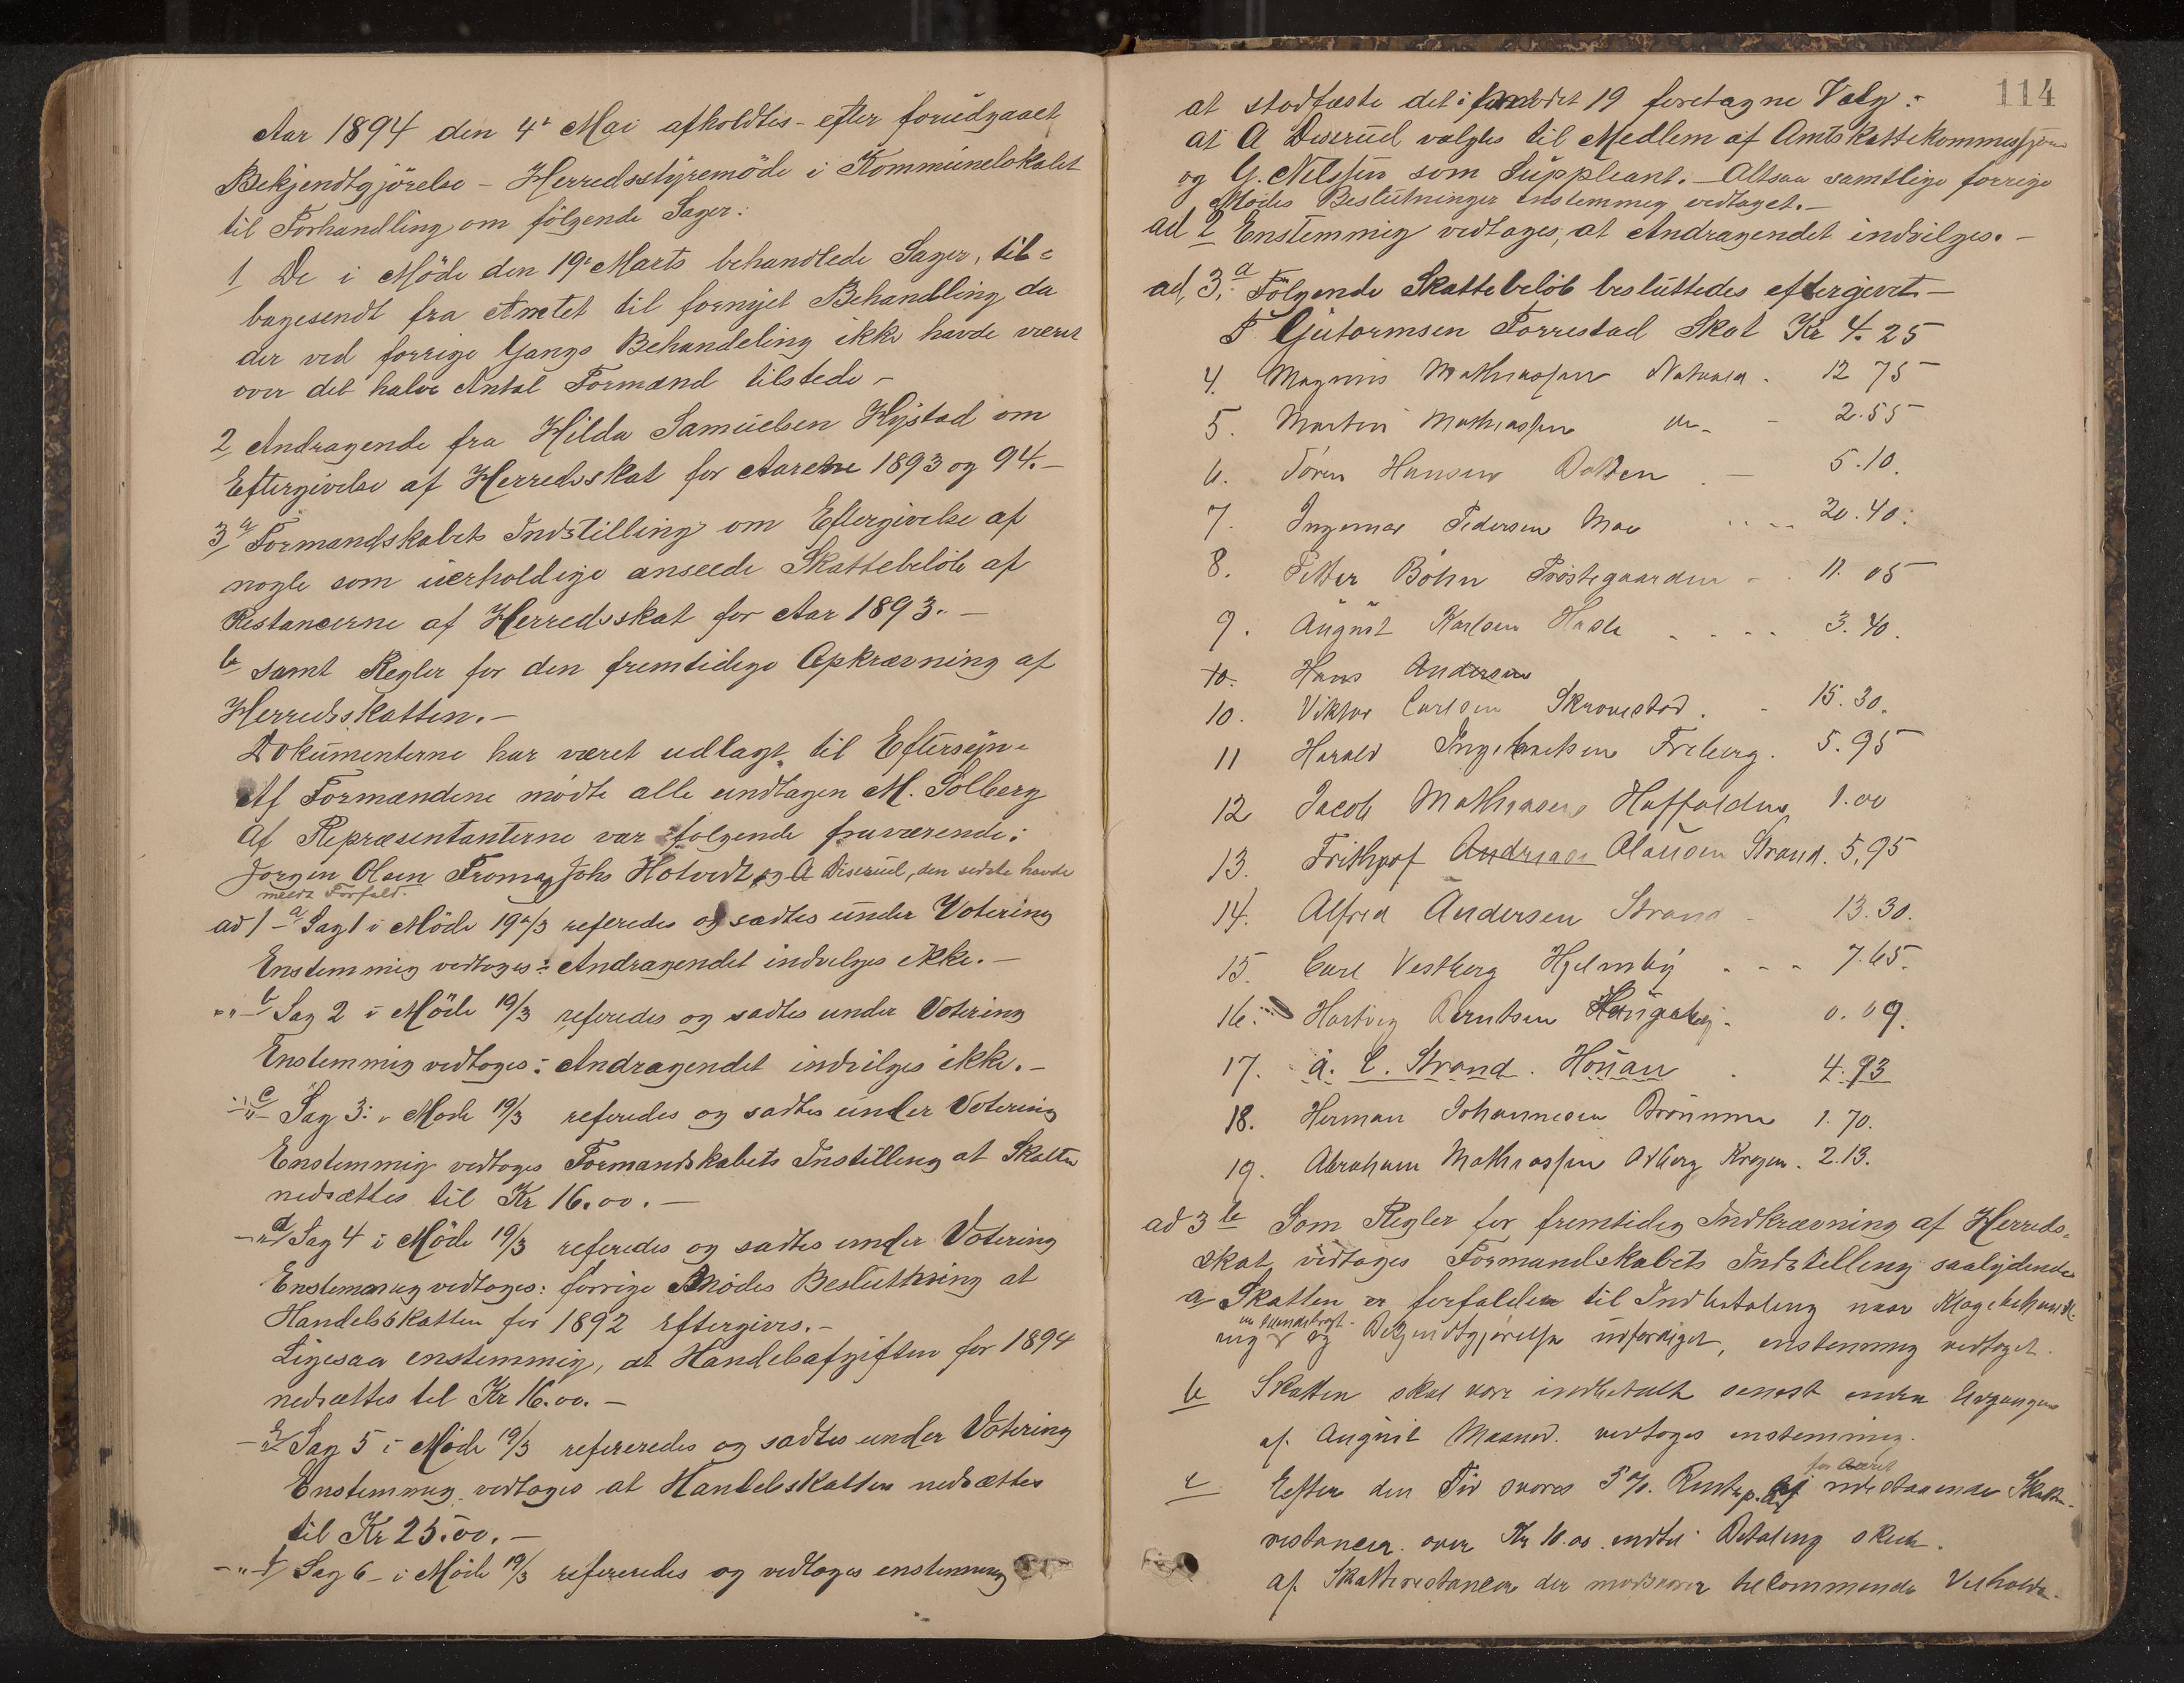 Aar 1894 den 4de Mai afholdtes - efter forudgaaet
Bekjendtgjörelse - Herredsstyremöde i Kommunelokalet
til Forhandling om fölgende Sager:
1 De i Möde den 19de Marts behandlede Sager, til=
bagesendt fra Amtet til fornyet Behandling da
der ved forrige Gangs Behandeling ikke havde været
over det halve Antal Formænd tilstede -
2 Andragende fra Hilda Samuelsen Hystad om
Eftergivelse af Herredsskat for Aarene 1893 og 94. -
3 a Formandskabets Indstilling om Eftergivelse af
nogle som uerholdige anseede Skattebelöb af
Restancerne af Herredsskat for Aar 1893. -
b samt Regler for den fremtidige Opkrævning af
Herredsskatten. -
Dokumenterne har været udlagt til Eftersyn -
Af Formændene mödte alle undtagen M. Solberg
Af Repræsentanterne var fölgende fraværende:
Jorgen Olsen Fromag Johs Hotvedt og A Diserud, den sidste havde
meldt Forfald.
ad 1 - a Sag 1 i Möde 19de/3 referedes og sadtes under Votering
Enstemmig vedtoges: Andragendet indvilges ikke. -
" " - b Sag 2 i Möde 19/3 referedes og sadtes under Votering
Enstemmig vedtoges: Andragendet indvilges ikke. -
- " - c Sag 3: i Möde 19/3 referedes og sadtes under Votering
Enstemmig vedtoges Formandskabets Instilling at Skatten
nedsættes til Kr 16.00. -
- " d Sag 4 i Möde 19/3 referedes og sadtes under Votering
Enstemmig vedtoges: forrige Mödes Beslutning at
Handelsskatten for 1892 eftergives. -
Ligesaa enstemmig, at Handelsafgiften for 1894
nedsættes til Kr 16.00. -
- " e Sag 5 i Möde 19/3 refereredes og sadtes under Votering
Enstemmig vedtoges at Handelsskatten nedsættes
til Kr 25.00. -
- " - f Sag 6 - i Möde 19/3 refereredes og vedtoges enstemmig
114
at stadfæste det i mödet 19 foretagne Valg:
at A Diserud valgtes til Medlem af Amtskattekommissjonen
og G. Nilssen som Suppleant. - Altsaa samtlige forrige
Mödes Beslutninger enstemmig vedtaget. -
ad 2 Enstemmig vedtages, at Andragendet indvilges. -
ad, 3, a Fölgende Skattebelöb besluttedes eftergivet -
F Gutormsen Forrestad Skat Kr 4.25
4. Magnus Mathiassen - 12 75
5. Martin Mathiassen do - - 2.55
6. Sören Hansen - 5.10.
7. Ingemar Pedersen Moe - - - 20.40.
8. Petter Böhn Prostegaarden - - 11.05
9. August Karlsen Hasle - - - - 3.40.
10. Hans Andersen
10. Viktor Carlsen Skravestad. - 15.30.
11 Harald Ingebretsen Freberg. 5.95
12 Jacob Mathiasen 1.00
13. Frithjof Andreas Olausen Strand. 5,95
14. Alfred Andersen Strand - 13.30.
15. Carl Vestberg Hjelmby - - - 7.65.
16. Hartvig Berntsen Haugaby. 0.09.
17. A. C. Strand. Houan . 4.93
18. Herman Johannesen 1.70.
19. Abraham Mathiassen Kragen. 2.13.
ad 3 b Som Regler for fremtidig Indkrævning af Herreds-
skat, vedtages Formandskabets Indstilling saalydende
a Skatten er forfalden til Indbetaling naar Klagebehandl-
er tilendebragt -
ing og Bekjendtgjörelse udfærdiget, enstemmig vedtaget.
b Skatten skal være indbetalt senest inden Udgangen
af August Maaned. vedtoges enstemmig.
for Aaret
c Efter den Tid svares 5 %. Rente p. A. af indestaaende Skatte-
restancer over Kr 10.00. indtil Betaling skeer.
af Skatterestancer der modsvarer